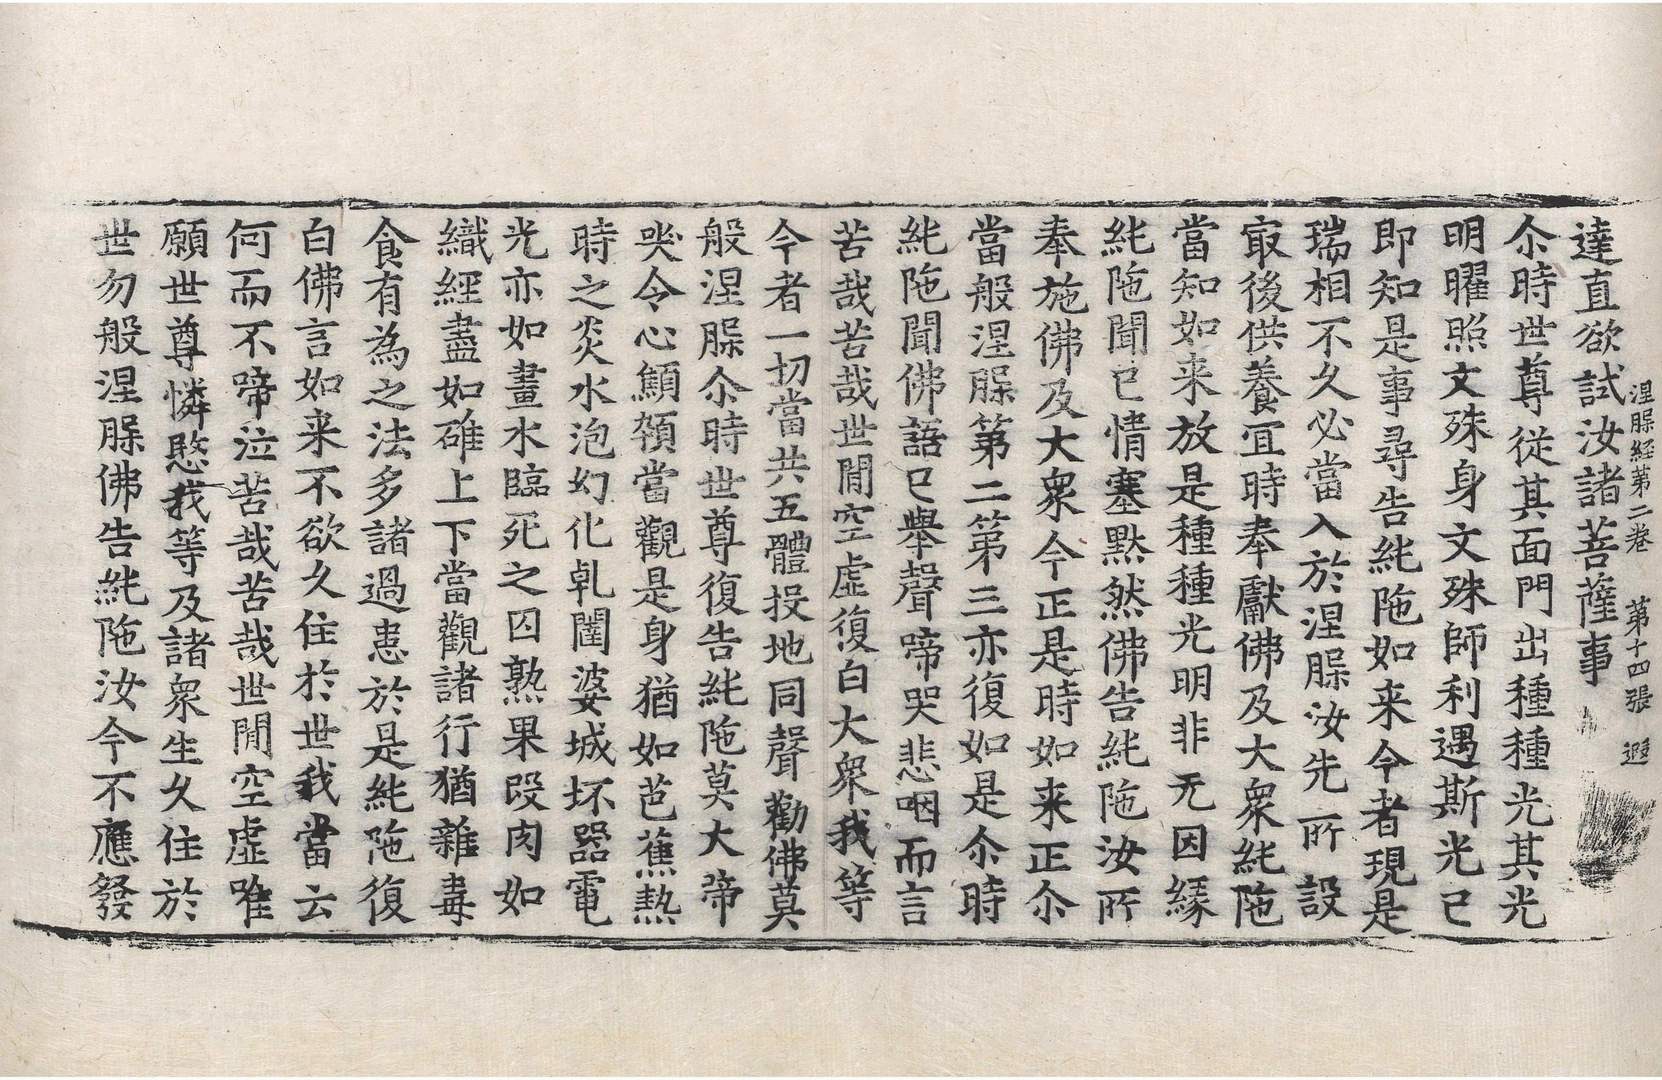 達直欲試汝諸菩薩事
涅槃經第二卷　第十四張　遐
尒時世尊從其面門出種種光其光
明曜照文殊身文殊師利遇斯光已
即知是事尋告純陁如来今者現是
瑞相不久必當入於涅槃汝先所設
㝡後供養宜時奉獻佛及大衆純陁
當知如来放是種種光明非无因緣
純陁聞已情塞黙然佛告純陁汝所
奉施佛及大衆今正是時如来正尒
當般涅槃第二第三亦復如是尒時
純陁聞佛語已舉聲啼哭悲咽而言
苦哉苦哉世間空虛復白大衆我等
今者一切當共五體投地同聲勸佛莫
般涅槃尒時世尊復告純陁莫大啼
哭令心顦顇當觀是身猶如芭蕉熱
時之炎水泡幻化乹闥婆城坏器電
光亦如畫水臨死之囚熟果段肉如
織經盡如碓上下當觀諸行猶雜毒
食有為之法多諸過患於是純陁復
白佛言如来不欲久住於世我當云
何而不啼泣苦哉苦哉世間空虛唯
願世尊憐愍我等及諸衆生久住於
世勿般涅槃佛告純陁汝今不應發